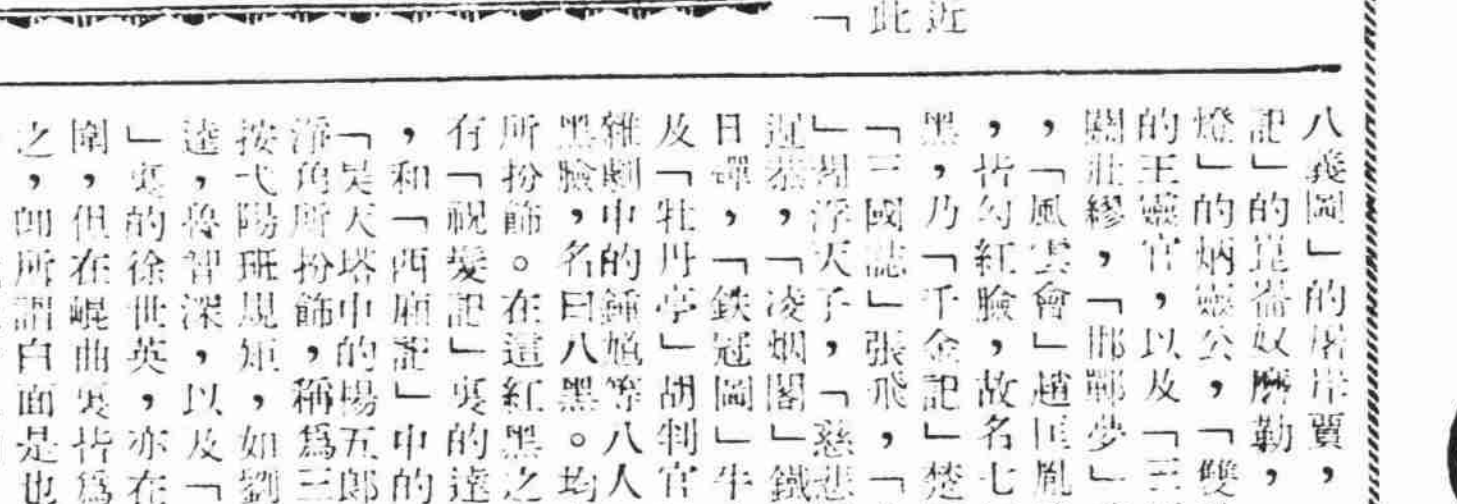 近
此
「
八義圖」的屠岸賈，
記」的崑崙奴磨勒，
燈」的炳靈公，「雙
的王靈官，以及「三
關壯繆，「邯鄲夢」
，「風雲會」趙匡胤
，皆勾紅臉，故名七
黑，乃「千金記」楚
「三國誌」張飛，「
」周浮天子，「慈悲
遲恭，「凌烟閣」鐵
日磾，「鉄冠圖」牛
及「牡丹亭」胡判官
雜劇中的鍾馗等八人
黑臉，名曰八黑。均
所扮飾。在這紅黑之
有「祝髮記」裏的達
，和「西廂記」中的
「昊天塔中的楊五郎
淨角所扮飾，稱爲三
按弋陽班規矩，如劉
逵，魯智深，以及「
」裏的徐世英，亦在
圍，但在崐曲裏皆爲
之，卽所謂白面是也